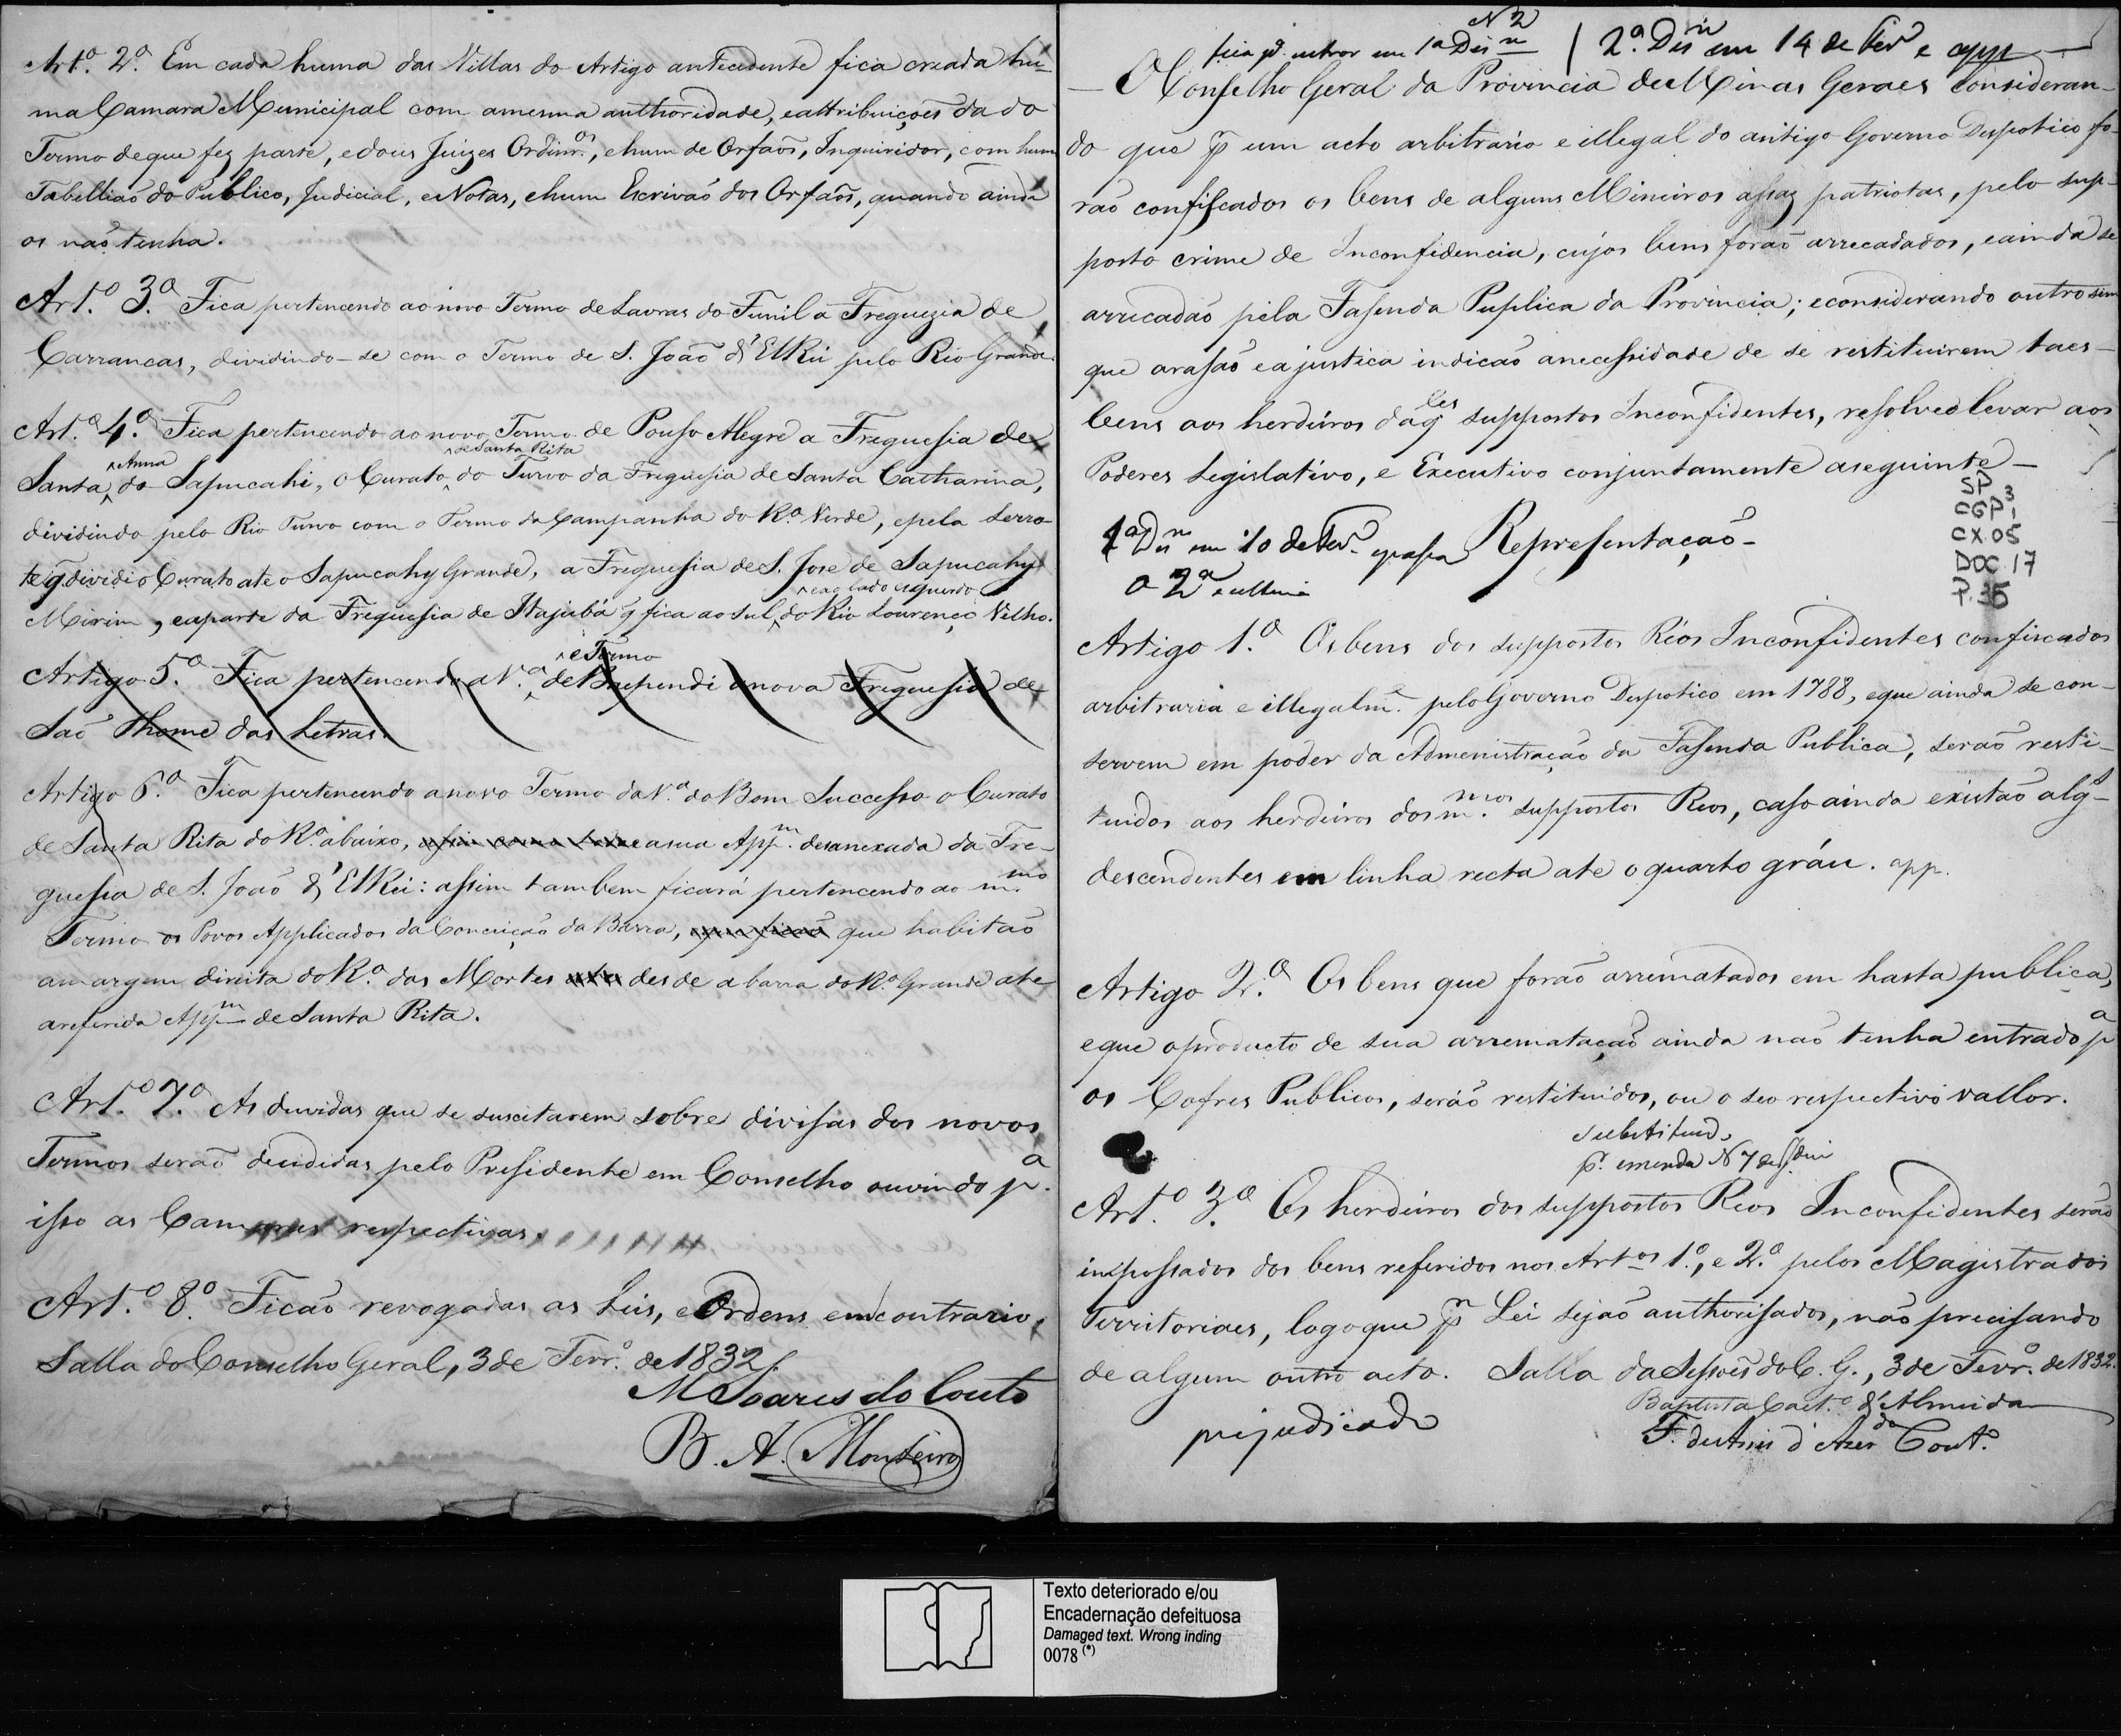 Art.º 2.º Em cada huma das Villas do Artigo antecedente fica creada hu-
ma Camara Municipal com amesma authoridade, eattribuições da do
Termo deque fez parte, edous Juizes Ordinr.os, ehum de Orfãos, Inquiridor, com hum
Tabellião do Publico, Judicial, eNotas, ehum Escrivão dos Orfãos, quando ainda
os não tenha.
Art.º 3.º Fica pertencendo ao novo Termo de Lavras do Funil a Freguezia de
Carrancas, dividindo-se com o Termo de S. João d'ElRei pelo Rio Grande.
Art.º 4.º Fica pertencendo ao novo Termo de Pouso Alegre a Freguesia de
Santa Anna do Sapucahi, o Curato de Santa Rita do Turvo da Freguesia de Santa Catharina,
dividindo pelo Rio Turvo com o Termo da Campanha do R.º Verde, epela serro
te q̃ divide o Curato ate o Sapucahy Grande, a Freguesia de S. Jose de Sapucahy
Mirim, eaparte da Freguesia de Itajubá q̃ fica ao sul, eao lado esquerdo do Rio Lourenço Velho.
Artigo 5.º Fica pertencendo a V.ª e Termo de Baependi anova Freguesia de
São Thome das Letras.
Artigo 6.º Fica pertencendo anovo Termo da V.ª do Bom Successo o Curato
de Santa Rita do R.º abaixo, asua App.m desanexada da Fre-
guesia de S. João d'ElRei: assim tambem ficará pertencendo ao m.mo
Termo os Povos Applicados da Conceição da Barra, que habitão
amargem direita do R.º das Mortes desde abarra do R.º Grande ate
areferida App.m de Santa Rita.
Art.º 7.º As duvidas que se suscitarem sobre divisas dos novos
Termos serão decididas pelo Presidente em Conselho ouvindo p.ª
isso as Camaras respectivas.
Art.º 8.º Ficão revogadas as Leis, eOrdens em contrario.
Salla do Conselho Geral, 3 de Fevr.º de 1832.
M Soares do Couto
B. A. Monteiro
N 2
fica p.ª entrar em 1ª Disn | 2.ª Disn em 14 de Fevº e app
O Conselho Geral da Provincia de Minas Geraes consideran-
do que p.r um acto arbitrario e illegal do antigo Governo Despotico fo-
rão confiscados os bens de alguns Mineiros assaz patriotas, pelo sup-
posto crime de Inconfidencia, cujos bens forão arrecadados, eainda se
arrecadão pela Fasenda Puplica da Provincia; econsiderando outro sim
que arasão eajustica indicão anecessidade de se restituirem taes
bens aos herdeiros daq.les suppostos Inconfidentes, resolveo levar aos
Poderes Legislativo, e Executivo conjuntamente aseguinte
SP
CGP 3 1
CX.05
DOC.17
P.35
1ª Disn em 10 de Fevº epassa Representação
a 2ª e ultima
Artigo 1.º Os bens dos suppostos Réos Inconfidentes confiscados
arbitraria e illegalm.e pelo Governo Despotico em 1788, eque ainda se con-
servem em poder da Admenistração da Fasenda Publica, serão resti-
tuidos aos herdeiros dos m.mos suppostos Reos, caso ainda existão alg.s
descendentes em linha recta ate o quarto gráu. app.
Artigo 2.º Os bens que forão arrematados em hasta publica,
eque oproducto de sua arrematação ainda não tenha entrado p.ª
os Cofres Publicos, serão restituidos, ou o seo respectivo vallor.
substituido
p. emenda N 7
Art.º 3.º Os herdeiros dos suppostos Reos Inconfidentes serão
impossados dos bens referidos nos Art.os 1.º, e 2.º pelos Magistrados
Territoriaes, logoque p.r Lei sejão authorisados, não precisando
de algum outro acto. Salla das Sessoẽs do C. G., 3 de Fevr.º de 1832.
Baptista Caet.º d'Almeida
prejudicado
F. de Assis d'Azer.do Cout.º
Texto deteriorado e/ou
Encadernação defeituosa
Damaged text. Wrong inding
0078 (*)